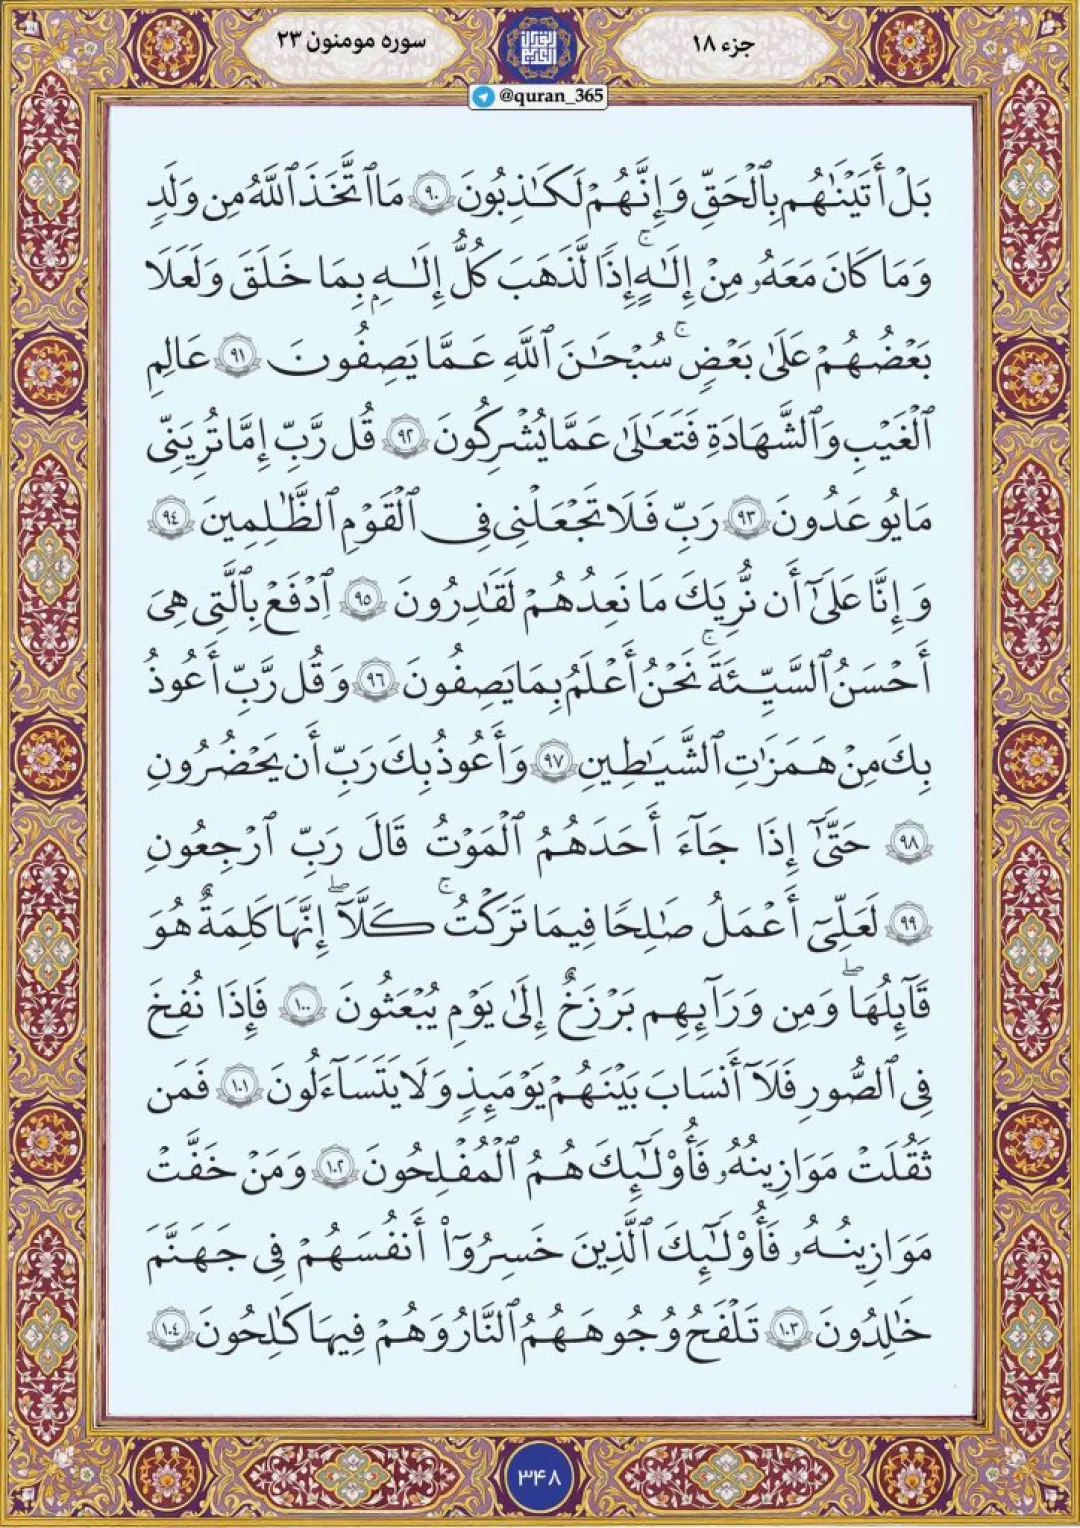 جزء ۱۸
سوره مومنون ۲۳
@quran_365
بَلْ أَتَيْنَٰهُم بِٱلْحَقِّ وَإِنَّهُمْ لَكَٰذِبُونَ ٩٠ مَا ٱتَّخَذَ ٱللَّهُ مِن وَلَدٍ
وَمَا كَانَ مَعَهُۥ مِنْ إِلَٰهٍ ۚ إِذًا لَّذَهَبَ كُلُّ إِلَٰهٍۭ بِمَا خَلَقَ وَلَعَلَا
بَعْضُهُمْ عَلَىٰ بَعْضٍ ۚ سُبْحَٰنَ ٱللَّهِ عَمَّا يَصِفُونَ ٩١ عَالِمِ
ٱلْغَيْبِ وَٱلشَّهَادَةِ فَتَعَالَىٰ عَمَّا يُشْرِكُونَ ٩٢ قُل رَّبِّ إِمَّا تُرِيَنِّي
مَا يُوعَدُونَ ٩٣ رَبِّ فَلَا تَجْعَلْنِي فِي ٱلْقَوْمِ ٱلظَّٰلِمِينَ ٩٤
وَإِنَّا عَلَىٰٓ أَن نُّرِيَكَ مَا نَعِدُهُمْ لَقَٰدِرُونَ ٩٥ ٱدْفَعْ بِٱلَّتِي هِيَ
أَحْسَنُ ٱلسَّيِّئَةَ ۚ نَحْنُ أَعْلَمُ بِمَا يَصِفُونَ ٩٦ وَقُل رَّبِّ أَعُوذُ
بِكَ مِنْ هَمَزَٰتِ ٱلشَّيَٰطِينِ ٩٧ وَأَعُوذُ بِكَ رَبِّ أَن يَحْضُرُونِ
٩٨ حَتَّىٰٓ إِذَا جَآءَ أَحَدَهُمُ ٱلْمَوْتُ قَالَ رَبِّ ٱرْجِعُونِ
٩٩ لَعَلِّيٓ أَعْمَلُ صَٰلِحًا فِيمَا تَرَكْتُ ۚ كَلَّآ ۖ إِنَّهَا كَلِمَةٌ هُوَ
قَآئِلُهَا ۖ وَمِن وَرَآئِهِم بَرْزَخٌ إِلَىٰ يَوْمِ يُبْعَثُونَ ١٠٠ فَإِذَا نُفِخَ
فِي ٱلصُّورِ فَلَآ أَنسَابَ بَيْنَهُمْ يَوْمَئِذٍ وَلَا يَتَسَآءَلُونَ ١٠١ فَمَن
ثَقُلَتْ مَوَازِينُهُۥ فَأُو۟لَٰٓئِكَ هُمُ ٱلْمُفْلِحُونَ ١٠٢ وَمَنْ خَفَّتْ
مَوَازِينُهُۥ فَأُو۟لَٰٓئِكَ ٱلَّذِينَ خَسِرُوٓا۟ أَنفُسَهُمْ فِي جَهَنَّمَ
خَٰلِدُونَ ١٠٣ تَلْفَحُ وُجُوهَهُمُ ٱلنَّارُ وَهُمْ فِيهَا كَٰلِحُونَ ١٠٤
۳۴۸